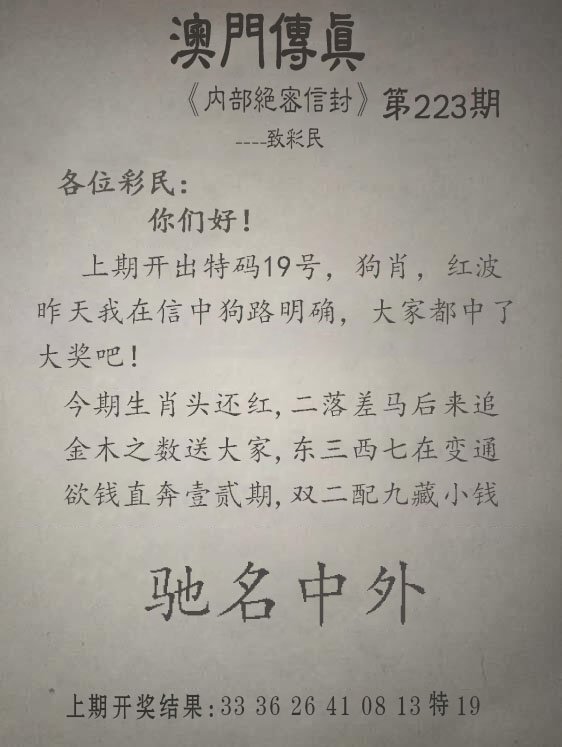 澳門傳真
《内部絕密信封》第223期
----致彩民
各位彩民：
你们好！
上期开出特码19号，狗肖，红波
昨天我在信中狗路明确，大家都中了
大奖吧！
今期生肖头还红,二落差马后来追
金木之数送大家,东三西七在变通
欲钱直奔壹贰期,双二配九藏小钱
驰名中外
上期开奖结果:33 36 26 41 08 13特19